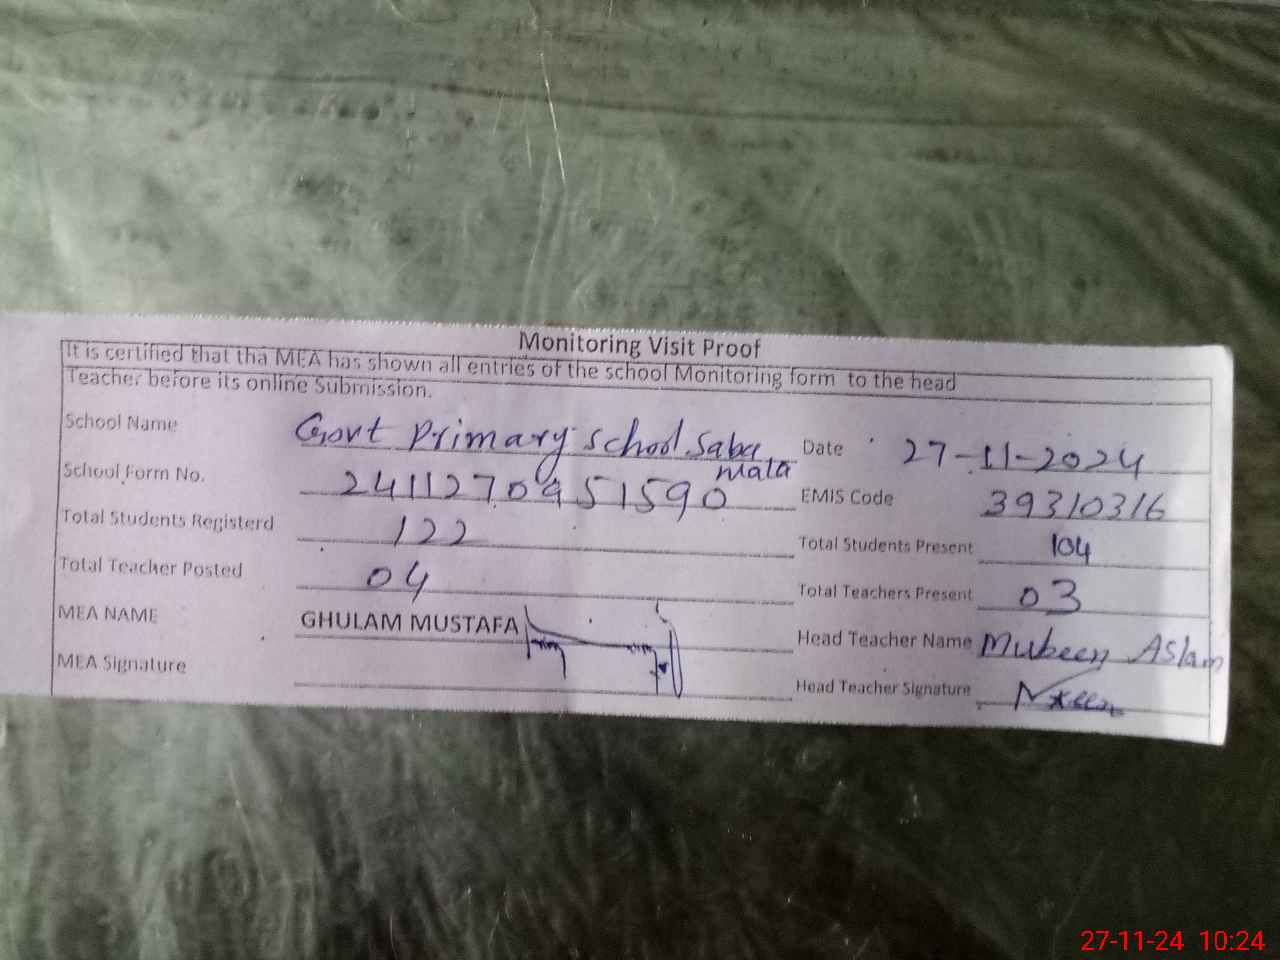 Monitoring Visit Proof
It is certified that tha MEA has shown all entries of the school Monitoring form to the head
Teacher before its online Submission.
School Name Govt Primary School Saba Mala Date 27-11-2024
School Form No. 2411270951590 EMIS Code 39310316
Total Students Registerd 122 Total Students Present 104
Total Teacher Posted 04 Total Teachers Present 03
MEA NAME GHULAM MUSTAFA Head Teacher Name Mubeen Aslam
MEA Signature Head Teacher Signature
27-11-24 10:24